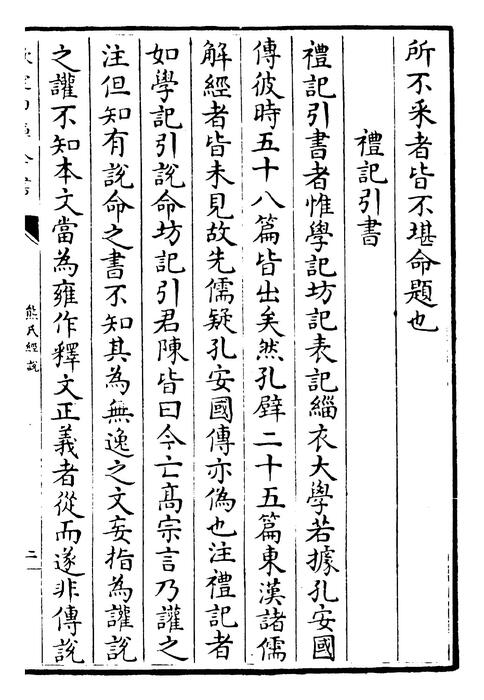 所不采者皆不堪命題也
禮記引書
禮記引書者惟學記坊記表記緇衣大學若據孔安國
傳彼時五十八篇皆出矣然孔壁二十五篇東漢諸儒
解經者皆未見故先儒疑孔安國傳亦偽也注禮記者
如學記引說命坊記引君陳皆曰今亡髙宗言乃讙之
注但知有說命之書不知其為無逸之文妄指為讙說
之讙不知本文當為雍作釋文正義者從而遂非傳說
熊氏經說
二